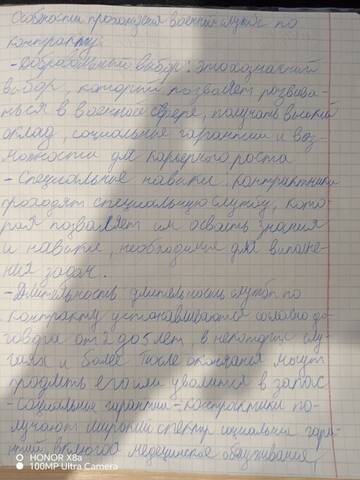 Особности прохождения военной службы по
контракту.
- Добравольный выбор: это осознаный
выбор, который позваляет развива-
ться в военной сфере, получать высокий
оклад, социальные гарантии и воз
можности для карьерного роста
- Специальные навыки, контрактники
проходят специальную службу, кото-
рая позваляет им освоить знания
и навыки, необходимые для выполне-
ния задач.
- Длительность длительность службы по
контракту устонавливаются согласно до-
говора от 2 до 5 лет, в некоторых слу-
чаях и более После окончания могут
продлить его или уволится в запас
- социальные гарантии - контрактники по-
лучают широкий спектр социальных гара-
нтий включая медецинское обслуживание
HONOR X8a
100MP Ultra Camera